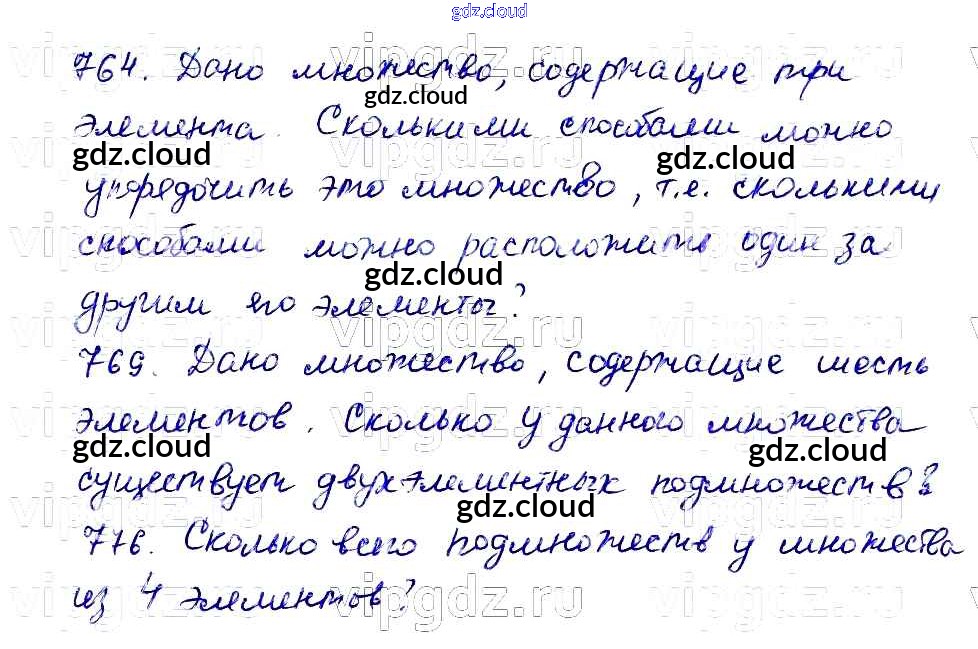 gdz.cloud
764. Дано множество, содержащие три
gdz.cloud
элемента. Сколькими способами можно
gdz.cloud
gdz.cloud
упорядочить это множество, т.е. сколькими
способами можно расположить один за
gdz.cloud
другим его элементы?
769. Дано множество, содержащие шесть
элементов. Сколько у данного множества
gdz.cloud
gdz.cloud
существует двухэлементных подмножеств?
gdz.cloud
776. Сколько всего подмножеств у множества
из 4 элементов?
vipgdz.ru